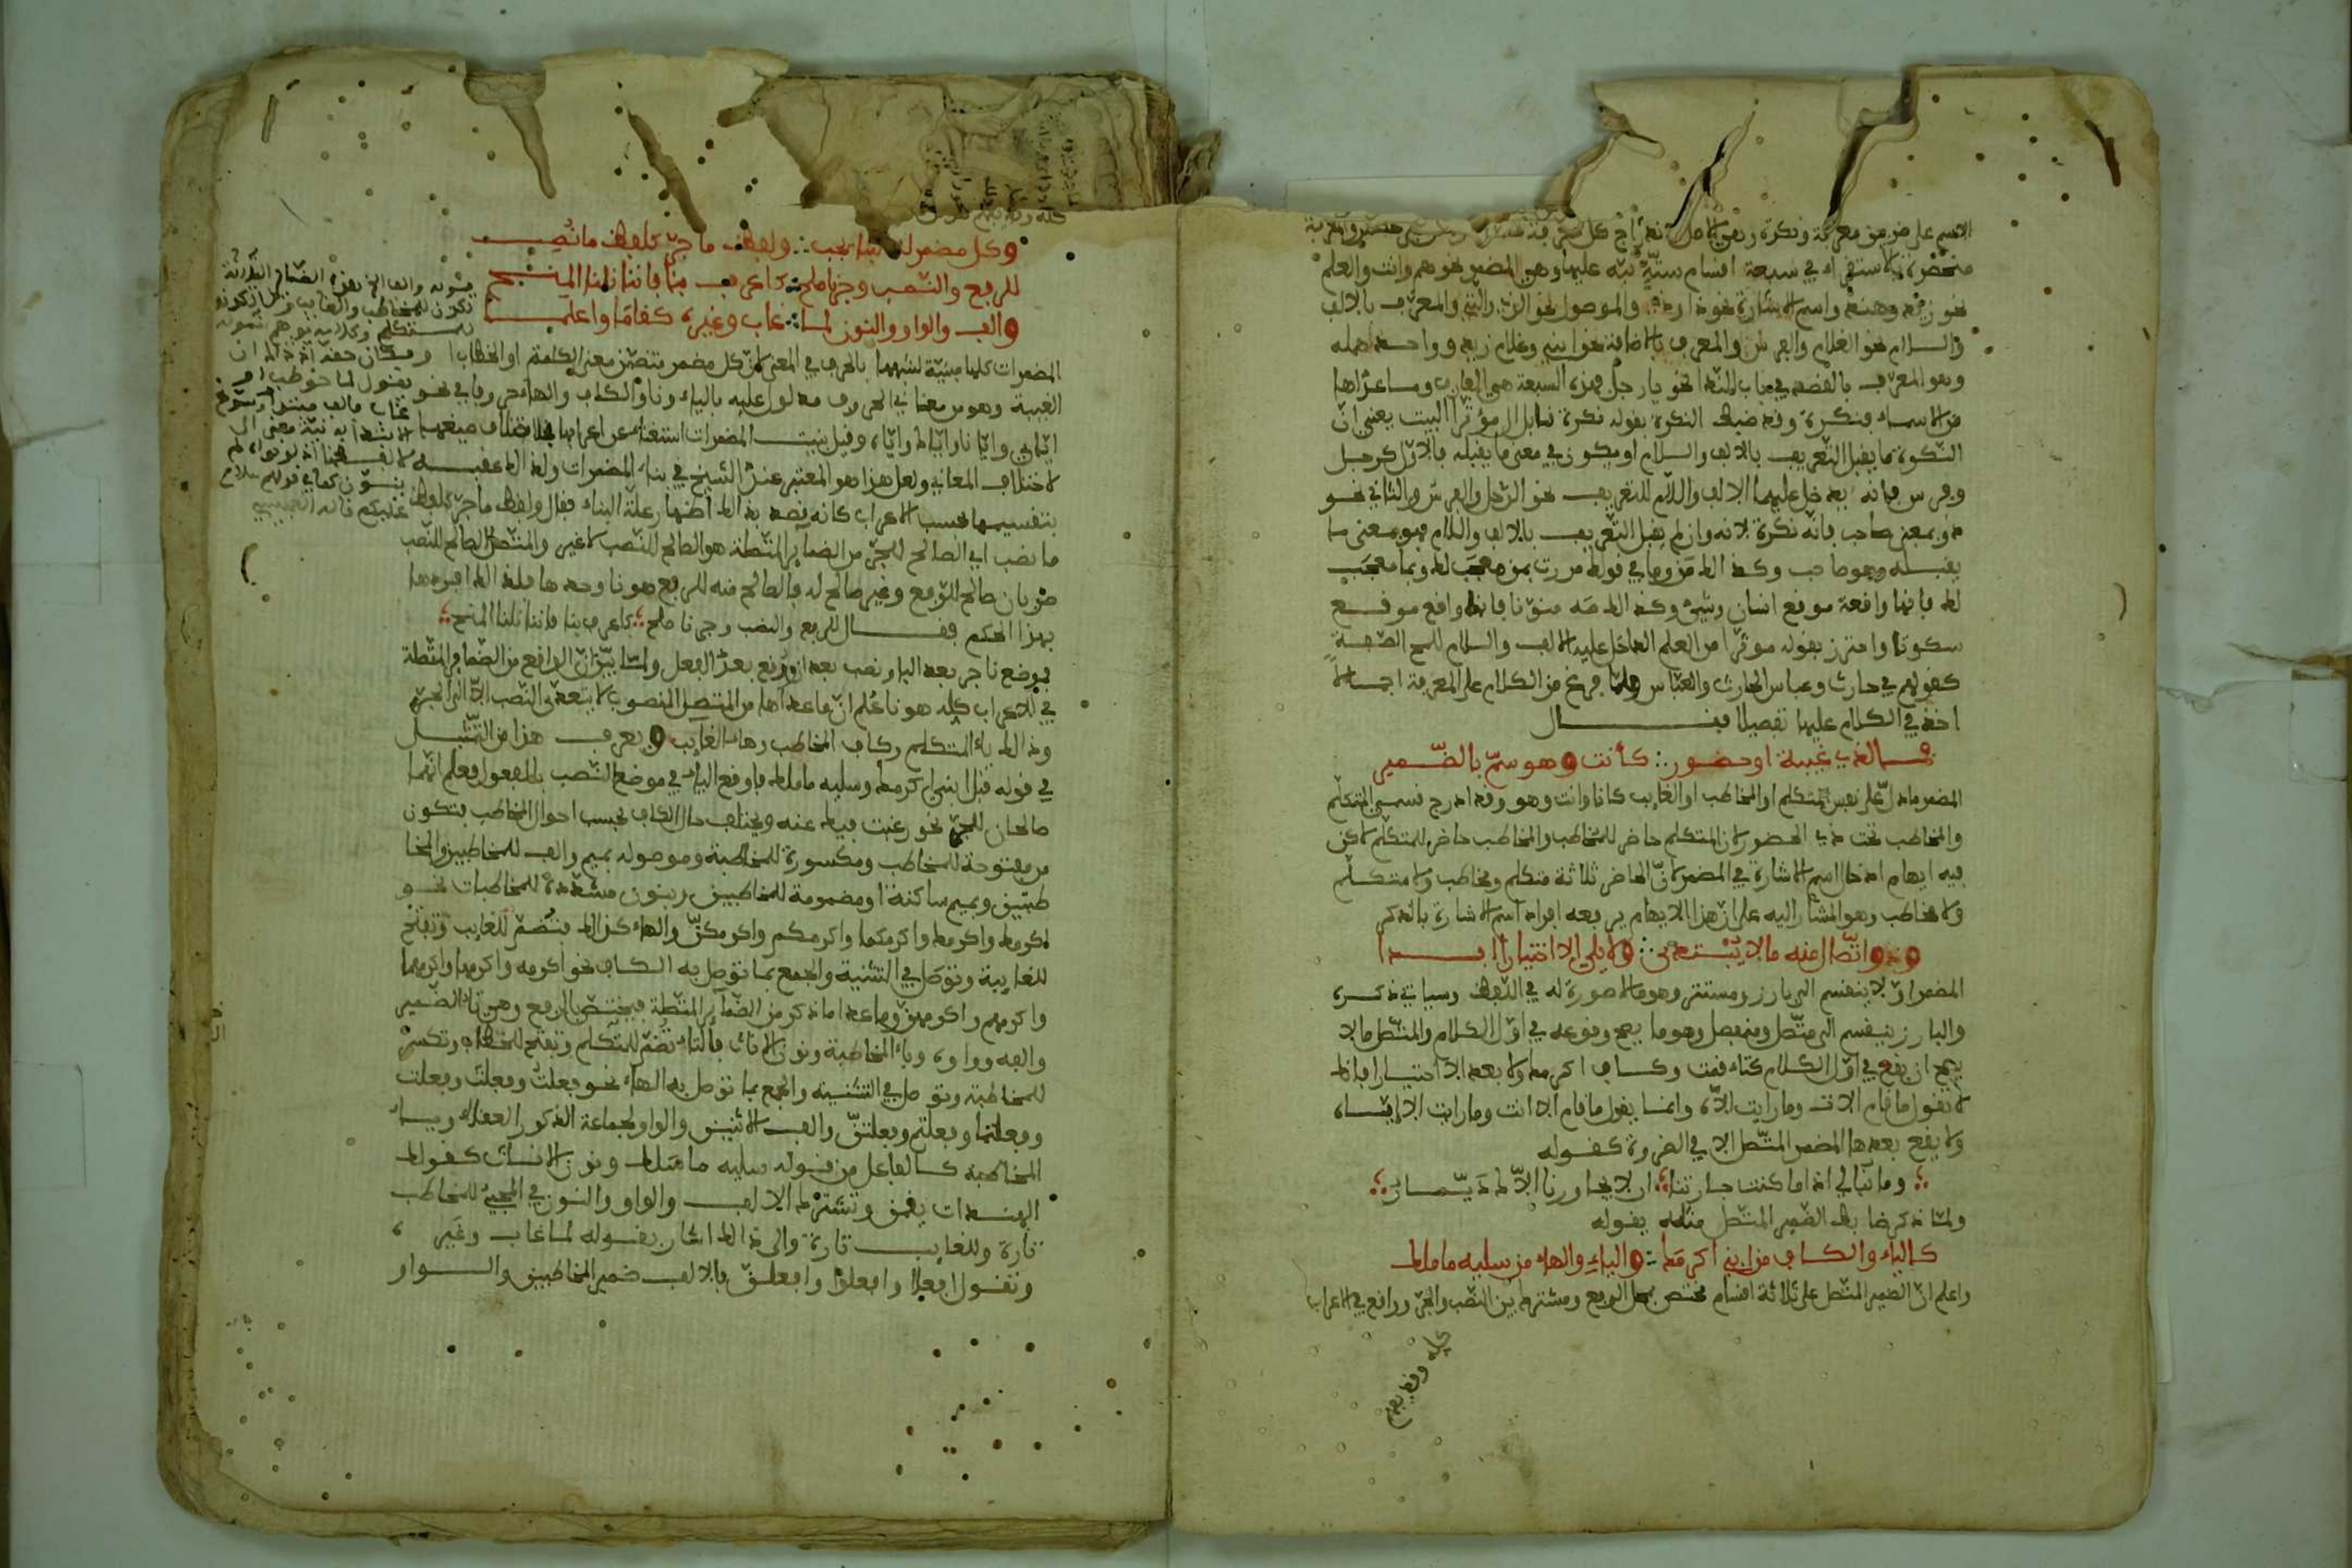 الاسم على ضربين معرفة ونكرة وهي الاصل
منحصرة بالاستقراء في سبعة اقسام ستة نبه عليها وهي المضمر نحو هم وانت والعلم
نحو زيد وهند واسم الاشارة نحو ذا وذه والموصول نحو الذي والتي والمعرف بالالف
والسلام نحو الغلام والفرس والمعرف بالاضافة نحو ابني وغلام زيد وواحد اهمله
وهو المعرف بالقصد في باب النداء نحو يا رجل فهذه السبعة هي المعارف وما عداها
من الاسماء فنكرة وقد ضبط النكرة بقوله نكرة قابل ال مؤثرا البيت يعني ان
النكرة ما يقبل التعريف بالالف والسلام او يكون في معنى ما يقبله فالاول كرجل
وفرس فانه يدخل عليهما الالف واللام للتعريف نحو الرجل والفرس والثاني نحو
ذو بمعنى صاحب فانه نكرة لانه وان لم يقبل التعريف بالالف واللام فهو بمعنى ما
يقبله وهو صاحب وكذلك من وما في قولك مررت بمن معجب لك وبما معجب
لك فانها واقعة موقع انسان وشيء وكذلك صه منونا فانه واقع موقع
سكوتا واحترز بقوله مؤثرا من العلم الداخل عليه الالف والسلام للمح الصفة
كقولهم في حارث وعباس الحارث والعباس ولما فرغ من الكلام على المعرفة اجمالا
اخذ في الكلام عليها تفصيلا فقال
فما لذي غيبة او حضور كأنت وهو سم بالضمير
المضمر ما دل على نفس المتكلم او المخاطب او الغايب كانا وانت وهو وقد ادرج قسمي المتكلم
والمخاطب تحت ذي الحضور لان المتكلم حاضر للمخاطب والمخاطب حاضر للمتكلم لاكن
فيه ايهام ادخال اسم الاشارة في المضمر لان الحاضر ثلاثة متكلم ومخاطب ولا متكلم
ولا مخاطب وهو المشار اليه على ان هذا الايهام يرفعه افراد اسم الاشارة بالذكر
وذو اتصال منه ما لا يبتدى ولا يلي الا اختيارا ابدا
المضمر اولا ينقسم الى بارز ومستتر وهو ما لا صورة له في اللفظ وسياتي ذكره
والبارز ينقسم الى متصل ومنفصل وهو ما يصح وقوعه في اول الكلام والمتصل ما لا
يصح ان يقع في اول الكلام كتاء قمت وكاف اكرمك ولا بعد الا اختيارا فانك
لا تقول ما قام الات وما رايت الاه وانما يقول ما قام الا انت وما رايت الا اياه
ولا يقع بعدها المضمر المتصل الا في الضرورة كقوله
وما نبالي اذا ما كنت جارتنا ان لا يجاورنا الاك ديار
ولما ذكر ضابط الضمير المتصل مثله بقوله
كالياء والكاف من ابني اكرمك والياء والهاء من سليه ما ملك
واعلم ان الضمير المتصل على ثلاثة اقسام مختص بمحل الرفع ومشترك بين النصب والجر وواقع في الاعراب
كله وقد
وكل مضمر له البنا يجب ولفظ ما جر كلفظ ما نصب
للرفع والنصب وجرنا صلح كاعرف بنا فاننا نلنا المنح
والف والواو والنون لما غاب وغيره كقاما واعلما
المضمرات كلها مبنية لشبهها بالحرف في المعنى لان كل مضمر يتضمن معنى التكلم او الخطاب او
الغيبة وهو من معاني الحروف مدلول عليه بالياء ونا والكاف والهاء حروفا في نحو
اياي وايانا واياك واياه وقيل بنيت المضمرات استغناء عن اعرابها باختلاف صيغها
لاختلاف المعاني ولعل هذا هو المعتبر عند الشيخ في بناء المضمرات ولذلك عقبه
بتقسيمها بحسب الاعراب كانه قصد بذلك اظهار علة البناء فقال ولفظ ما جر كلفظ
ما نصب اي الصالح للجر من الضمائر المتصلة هو الصالح للنصب لا غير والمتصل الصالح للنصب
ضربان صالح للرفع وغير صالح له فالصالح منه للرفع هو نا وحدها فلذلك افردها
بهذا الحكم فقال للرفع والنصب وجرنا صلح كاعرف بنا فاننا نلنا المنح
فموضع نا جر بعد البا ونصب بعد ان ورفع بعد الفعل ولما بين ان الواقع من الضمائر المتصلة
في الاعراب كله هو نا علم ان ما عداها من المتصل المنصوب لا يتعدى النصب الا الى الجر
وذلك ياء المتكلم وكاف المخاطب وهاء الغايب ويعرف هذا من التمثيل
في قوله قبل ابني اكرمك وسليه ما ملك فاوقع الياء في موضع النصب بالمفعول فعلم انهما
صالحان للجر نحو رغبت فيك عنه ويختلف حال الكاف بحسب احوال المخاطب فتكون
من مفتوحة للمخاطب ومكسورة للمخاطبة وموصوله بميم والف للمخاطبين والمخا
طبتين وبميم ساكنة او مضمومة للمخاطبين وبنون مشددة للمخاطبات نحو
اكرمك واكرمك واكرمكما واكرمكم واكرمكن والهاء كذلك فتضم للغايب وتفتح
للغايبة وتوصل في التثنية والجمع بما توصل به الكاف نحو اكرمه واكرمها واكرمهما
واكرمهم واكرمهن وما عدا ما ذكر من الضمائر المتصلة فيختص بالرفع وهو تاء الضمير
والفه وواوه وياء المخاطبة ونون الاناث فالتاء تضم للمتكلم وتفتح للمخاطب وتكسر
للمخاطبة وتوصل في التثنية والجمع بما توصل به الهاء نحو فعلت وفعلت وفعلت
وفعلتما وفعلتم وفعلتن والف الاثنين والواو لجماعة الذكور العقلاء وياء
المخاطبة كالفاعل من قوله سليه ما ملك ونون الاناث كقولك
الهندات يقمن وتشترك الالف والواو والنون في المجيء للمخاطب
تارة وللغايب تارة والى ذلك اشار بقوله لما غاب وغيره
وتقول افعلا وافعلوا وافعلن فالالف ضمير المخاطبين والواو